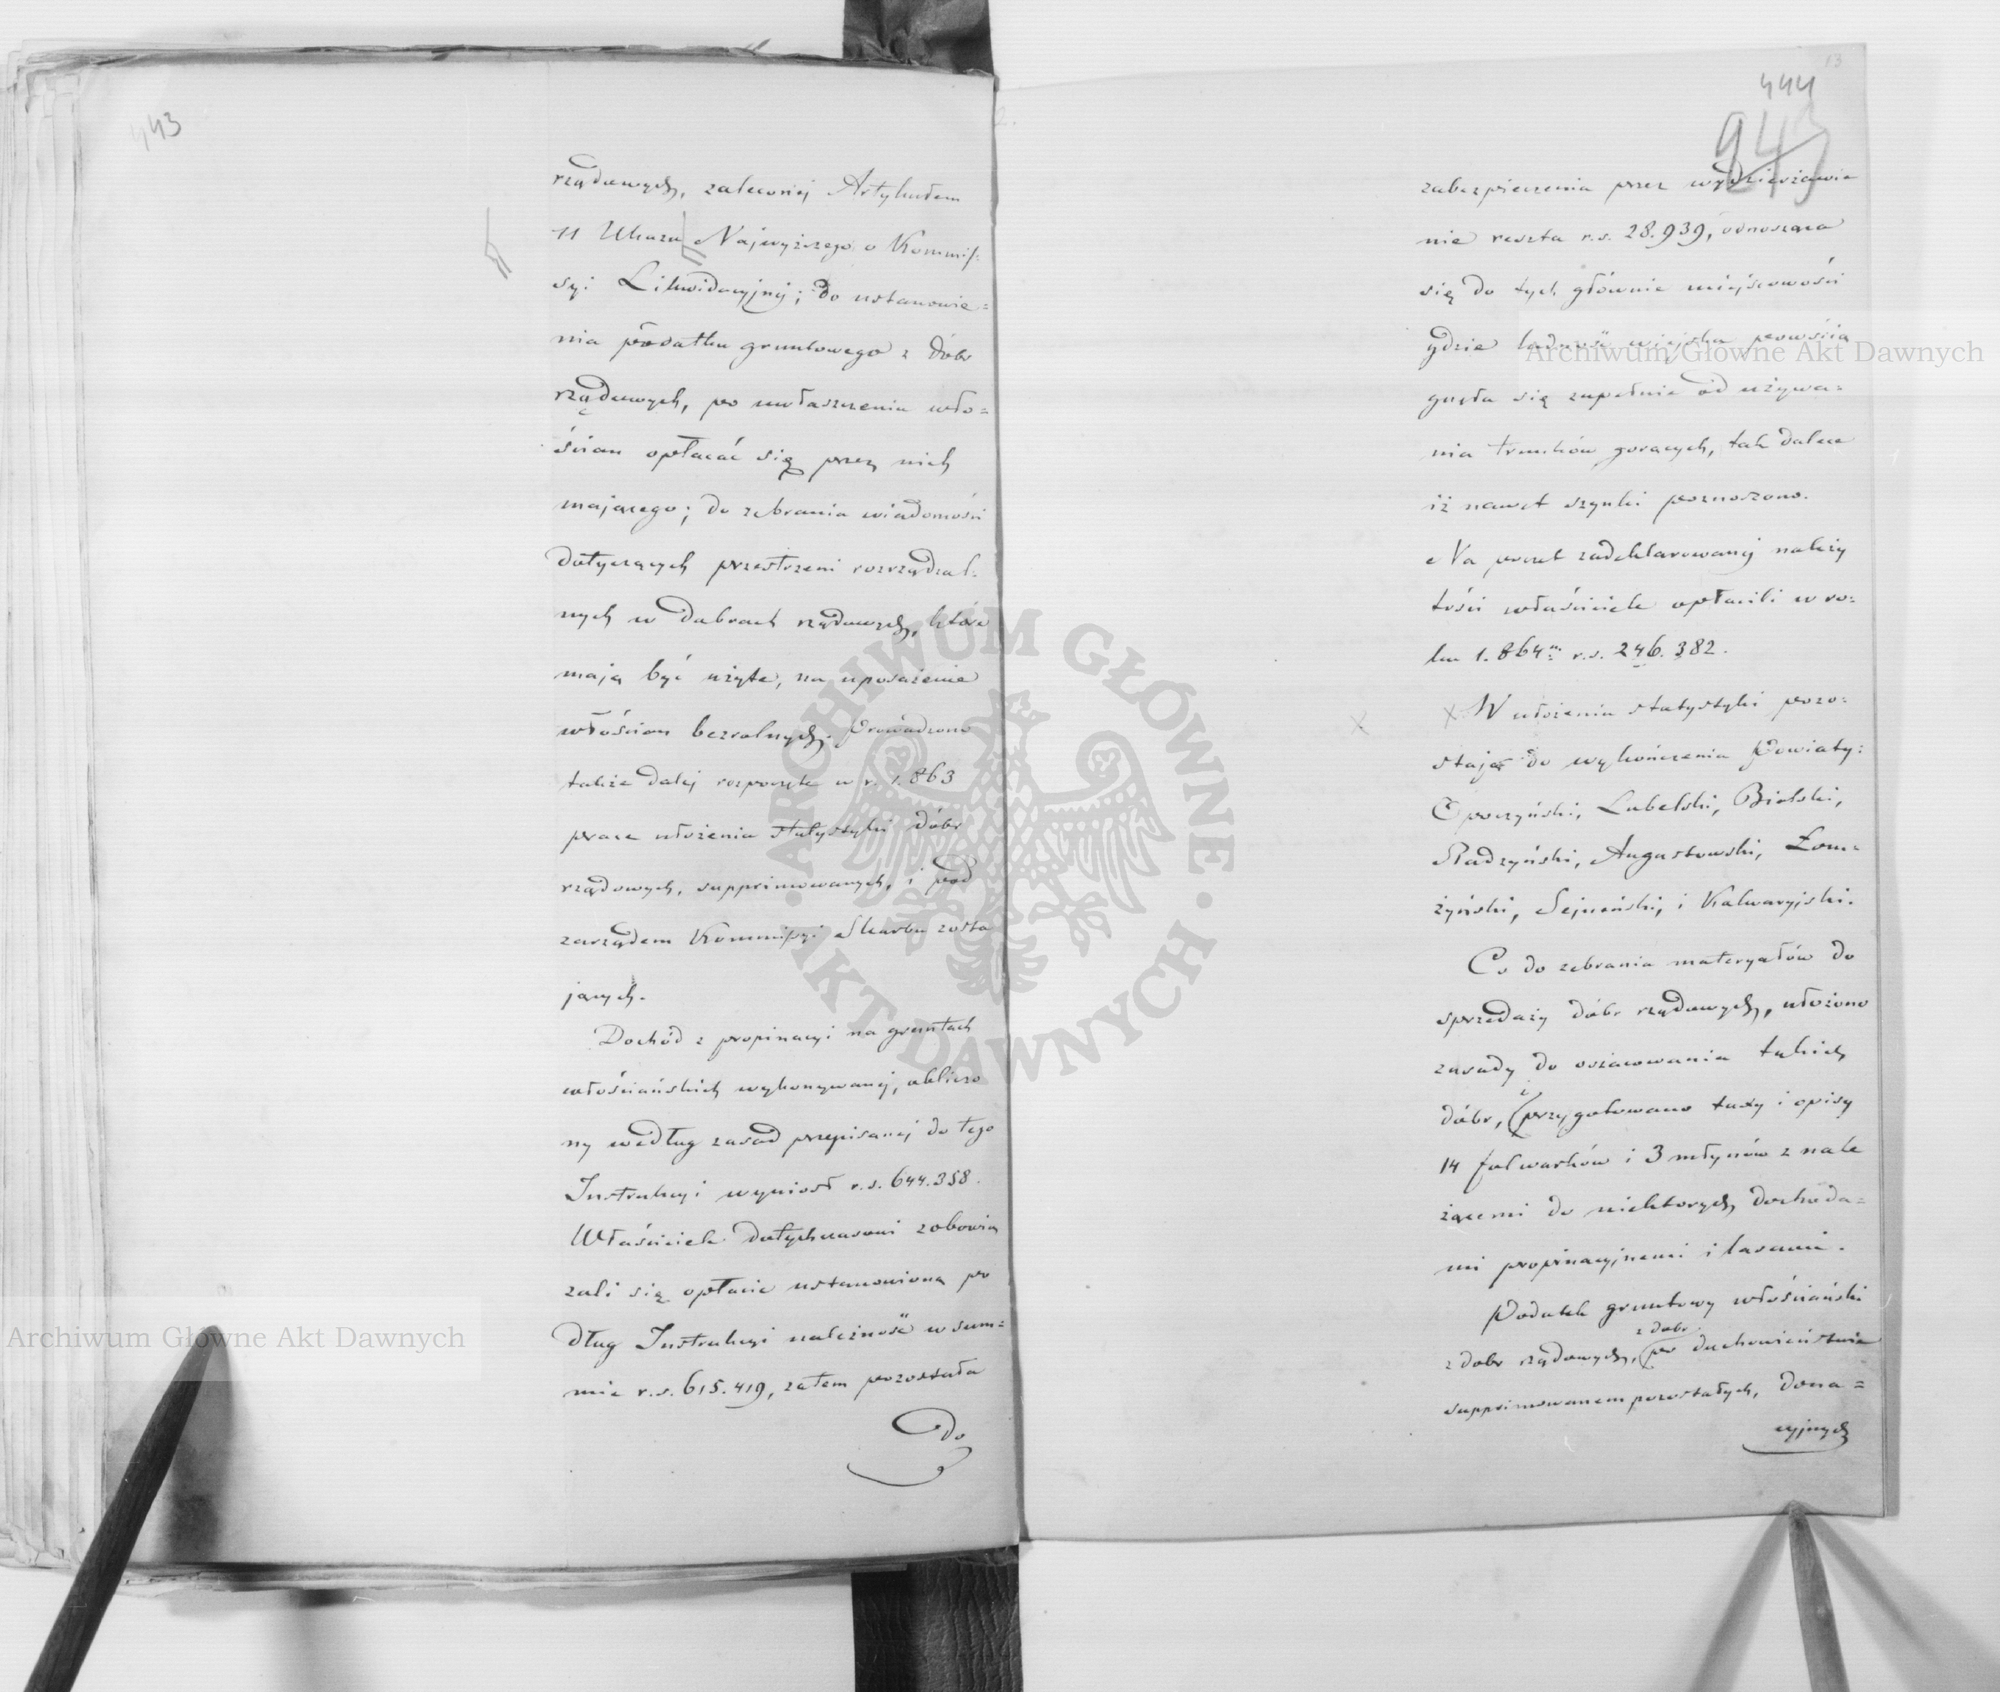 443
rządowych, zaleconéj Artykułem
11 Ukazu Najwyższego o Kommis=
syi Likwidacyjnéj; do ustanowie=
nia podatku gruntowego z dóbr
rządowych, po uwłaszczeniu wło=
ścian opłacać się przez nich
mającego; do zebrania wiadomości
dotyczących przestrzeni rozrządzal=
nych w dobrach rządowych, które
mają być użyte, na uposażenie
włościan bezrolnych. Prowadzono
także daléj rozpoczęte w r. 1.863
prace ułożenia statystyki dóbr
rządowych, supprimowanych, i pod
zarządem Kommissyi Skarbu zosta
jących.
Dochód z propinacyi na gruntach
włościańskich wykonywanéj, obliczo
ny według zasad przepisanéj do tego
Instrukcyi wyniosł r.s. 644.358.
Właściciele dotychczasowi zobowią
zali się opłacić ustanowioną po
dług Instrukcyi należność w sum=
mie r.s. 615.419, zatem pozostała
do
13
444
943
zabezpieczenia przez wydzierżawie
nie reszta r.s. 28.939, odnosząca
się do tych głównie miéjscowości
gdzie ludność wiéjska powścią
gnęła się zupełnie od używa=
nia trunków gorących, tak dalece
iż nawet szynki poznoszono.
Na poczet zadeklarowanéj należy
tości właściciele opłacili w ro=
ku 1.864m r.s. 246.382.
x W ułożeniu statystyki pozo=
stają do wykończenia Powiaty:
Opoczyński, Lubelski, Bialski,
Radzyński, Augustowski, Łom=
żyński, Sejneński, i Kalwaryjski.
Co do zebrania materyałów do
sprzedaży dóbr rządowych, ułożono
zasady do oszacowania takich
dóbr, i przygotowano taxy i opisy
14 folwarków i 3 młynów z nale
żącemi do niektorych dochoda=
mi propinacyjnemi i lasami.
Podatek gruntowy włościański
z dobr rządowych, z dobr po duchowieństwie
supprimowanem pozostałych, dona=
cyjnych
ARCHIWUM GŁÓWNE · AKT DAWNYCH ·
Archiwum Głowne Akt Dawnych
Archiwum Głowne Akt Dawnych